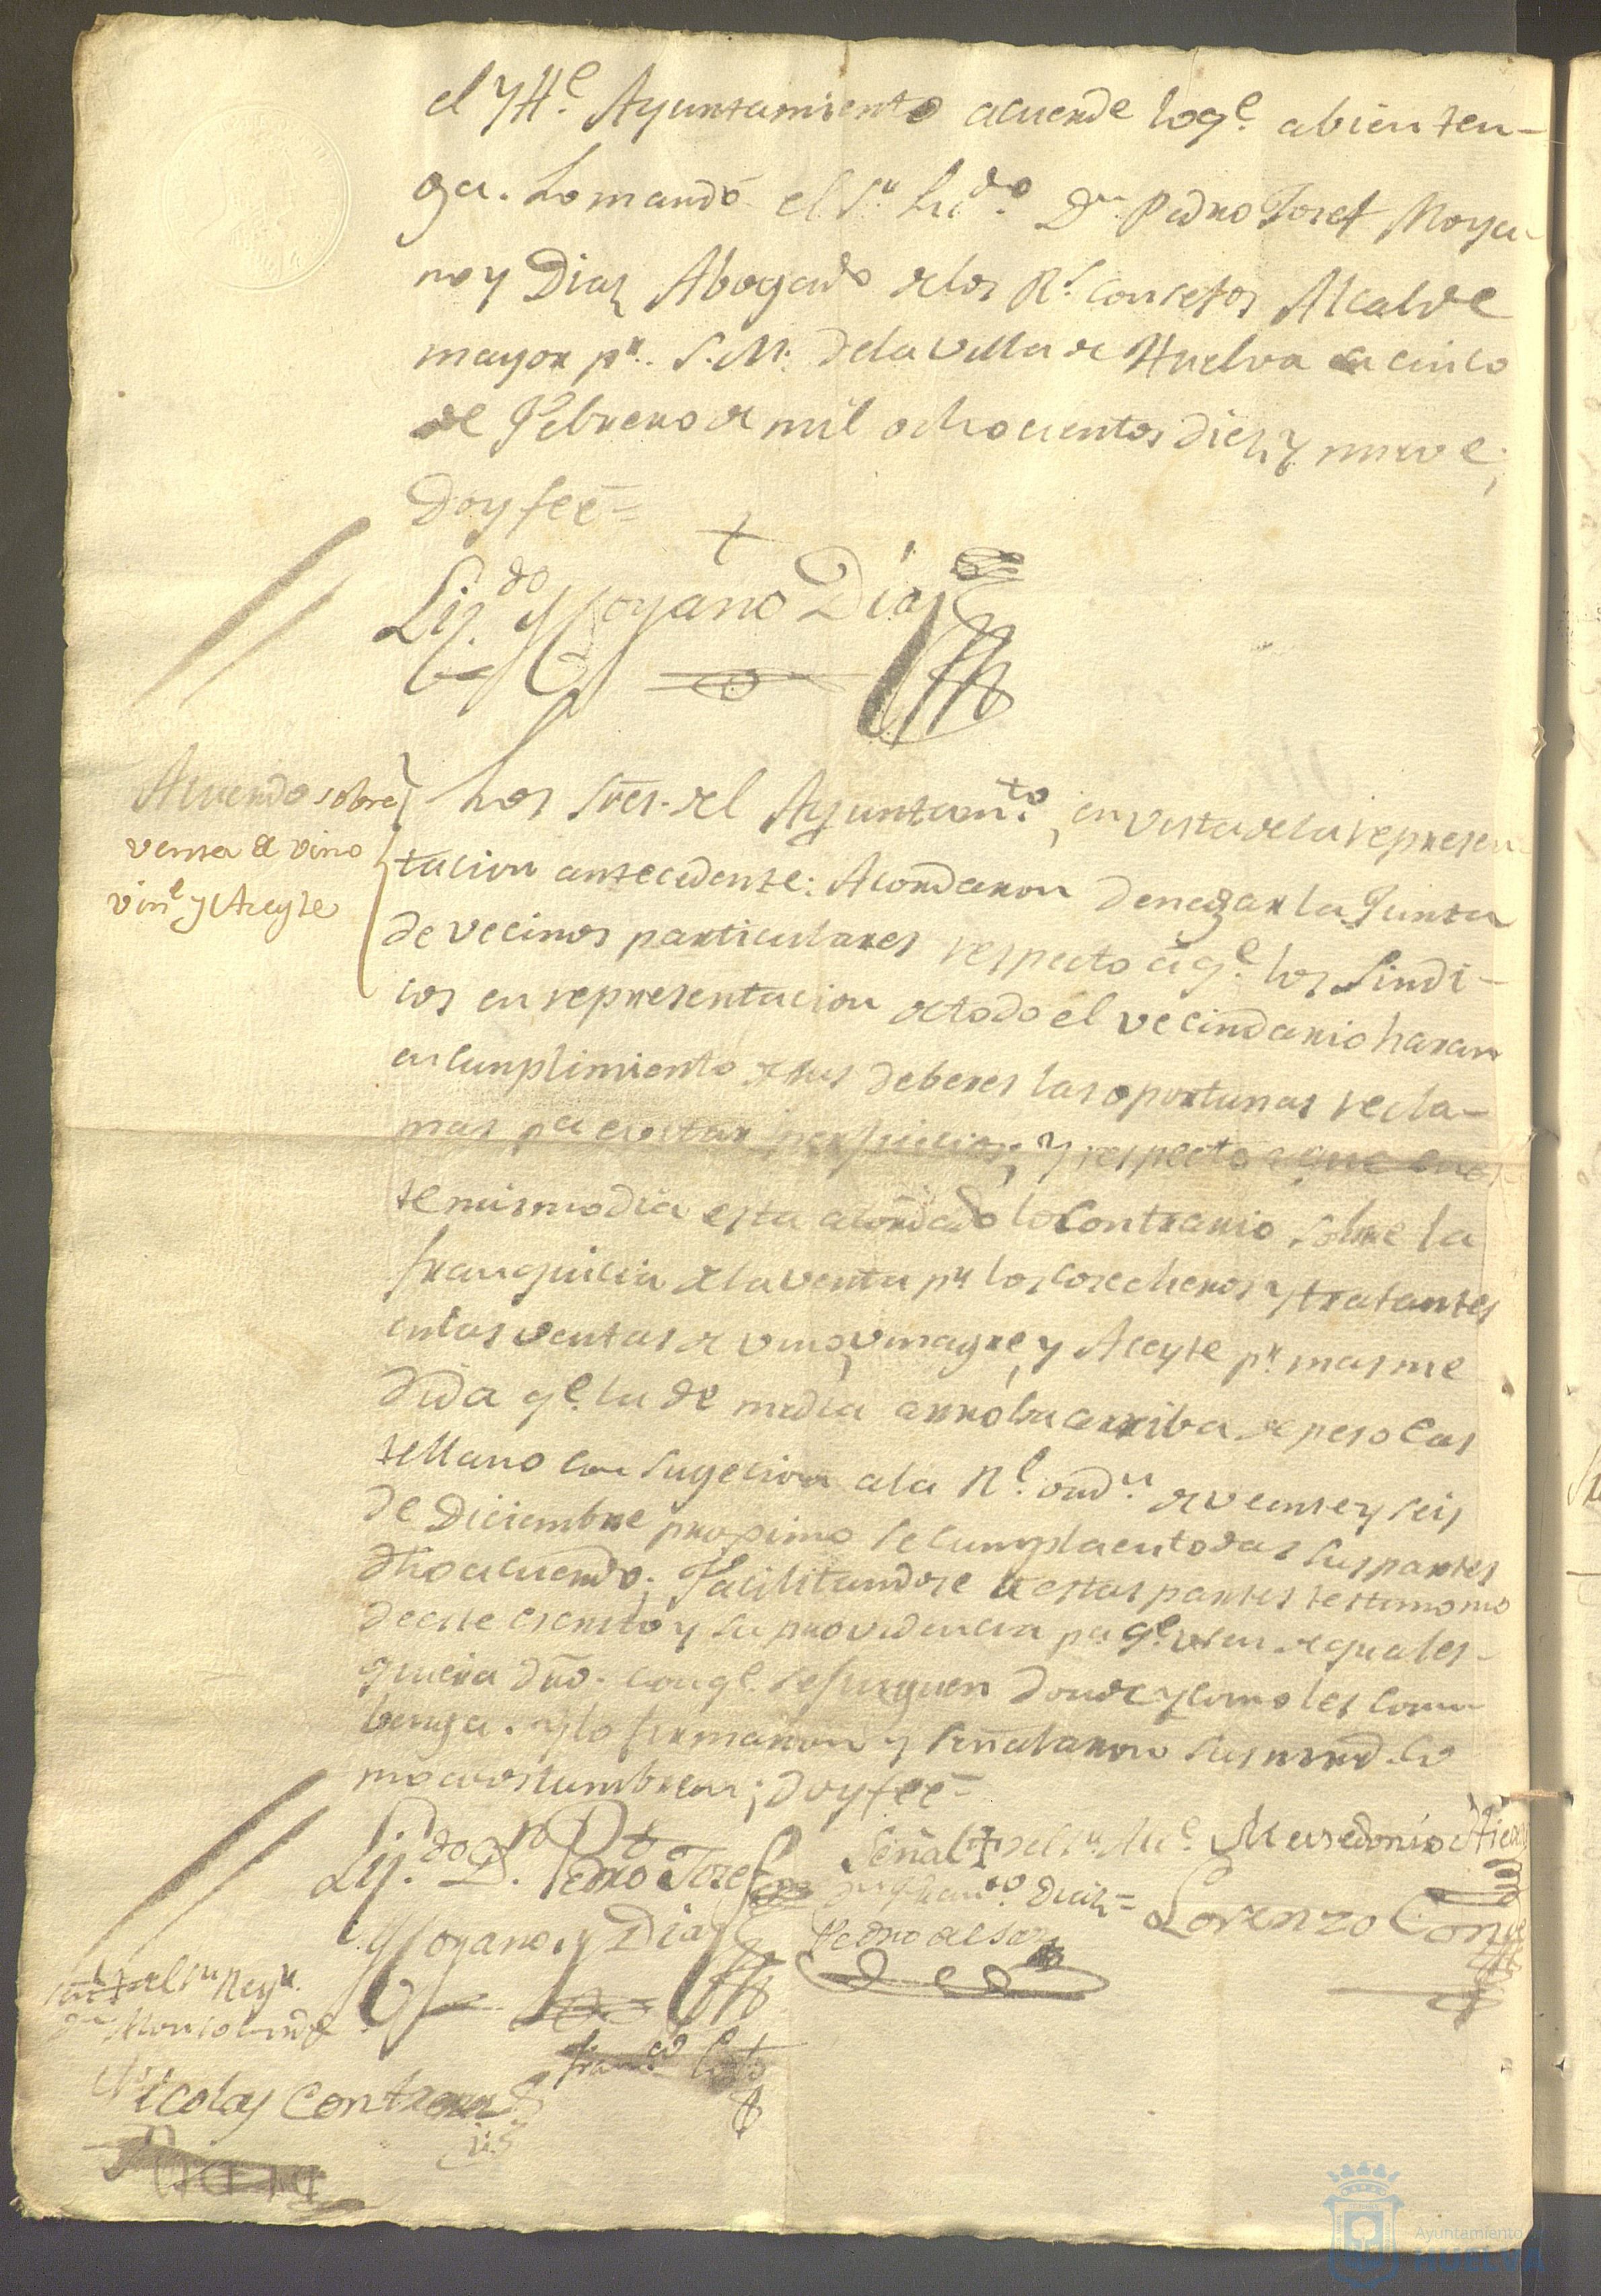 el Ylle. Ayuntamiento acuerde loqe. abien ten-
ga. Lo mandó el Sr. Licdo. Dn. Pedro Josef Moya-
no y Diaz Abogado delos Rs. Consejos Alcalde
mayor pr. S.M. dela villa de Huelva a cinco
de Febrero de mil ochocientos diez y nueve,
doy fee=
Liz.do Moyano Diaz
Acuerdo sobre
venta de vino
vine. y Aceyte
Los Sres. del Ayuntamto. en vista dela represen-
tacion antecedente: Acordaron denegar la Junta
de vecinos particulares respecto aqe. los Sindi-
cos en representacion de todo el vecindario haran
en cumplimiento de sus deberes las oportunas recla-
mas pa evitar perjuicios; y respecto a que en es-
te mismo dia esta acordado lo contrario sobre la
franquicia de la venta pr. los cosecheros y tratantes
en las ventas de vino, vinagre, y Aceyte pr. mas me-
dida qe. la de media arroba arriba de peso cas-
tellano con sugecion a la Rl. ordn. de veinte y seis
de Diciembre proximo se cumpla en todas sus partes
dho acuerdo; Facilitandose a estas partes testimonio
de este escrito y su providencia pa. qe. usen de quales-
quiera dro. con qe. se juzguen donde y como les com-
benga. Y lo firmaron y señalaron sus mrcd. co-
mo acostumbran; doy fee=
Liz.do Dn. Pedro Josef
Moyano y Diaz
Señal + del Sr. Ale.
Dn. Franco. Diaz=
Pedro de Soz
Macedonio
Lorenzo Conde
Señal + del Sr. Regr.
Dn.
Franco.
Nicolas Contreras
Ayuntamiento
HUELVA